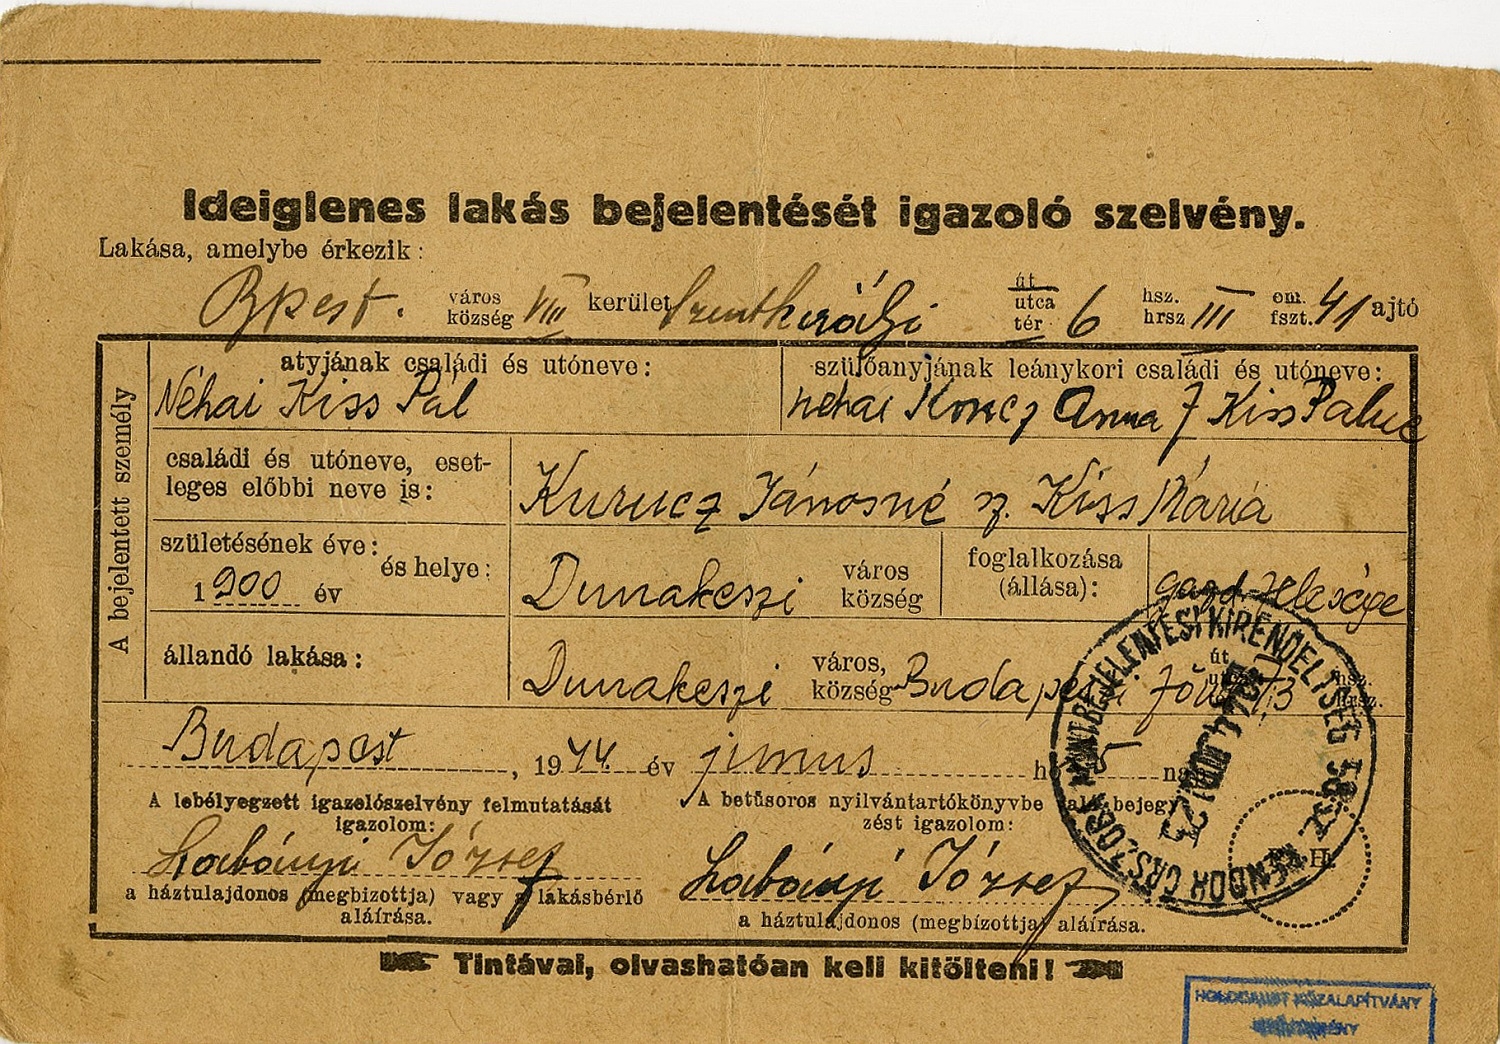 Ideiglenes lakás bejelentését igazoló szelvény.
Lakása, amelybe érkezik:
Bpest. város község VIII kerület Szentkirályi út utca tér 6 hsz. hrsz III em. fszt. 41 ajtó
A bejelentett személy
atyjának családi és utóneve: szülőanyjának leánykori családi és utóneve:
Néhai Kiss Pál néhai Anna Kiss Palné
családi és utóneve, eset-
leges előbbi neve is:
Kurucz Jánosné sz. Kiss Mária
születésének éve: és helye:
1900 év
Dunakeszi város község
foglalkozása (állása):
gazd. felesége
állandó lakása:
Dunakeszi város, község Budapesti út
Budapest, 1944. év junius hó 5 n
A lebélyegzett igazolószelvény felmutatását
igazolom:
A betűsoros nyilvántartókönyvbe való bejegy-
zést igazolom:
Labányi József Labányi József
a háztulajdonos (megbízottja) vagy a lakásbérlő
aláírása.
a háztulajdonos (megbízottja) aláírása.
P. H.
Tintával, olvashatóan kell kitölteni!
HOLOCAUST KÖZALAPÍTVÁNY